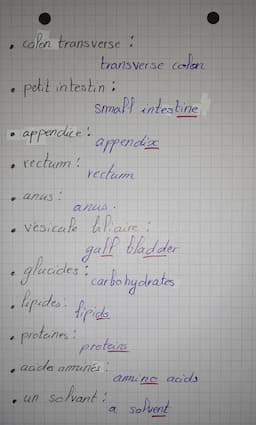 • colon transverse :
transverse colon
• petit intestin :
small intestine
• appendice :
appendix
• rectum :
rectum
• anus :
anus.
• vésicule biliaire :
gall bladder
• glucides :
carbohydrates
• lipides :
lipids
• proteines :
proteins
• acide aminés :
amino acids
• un solvant :
a solvent